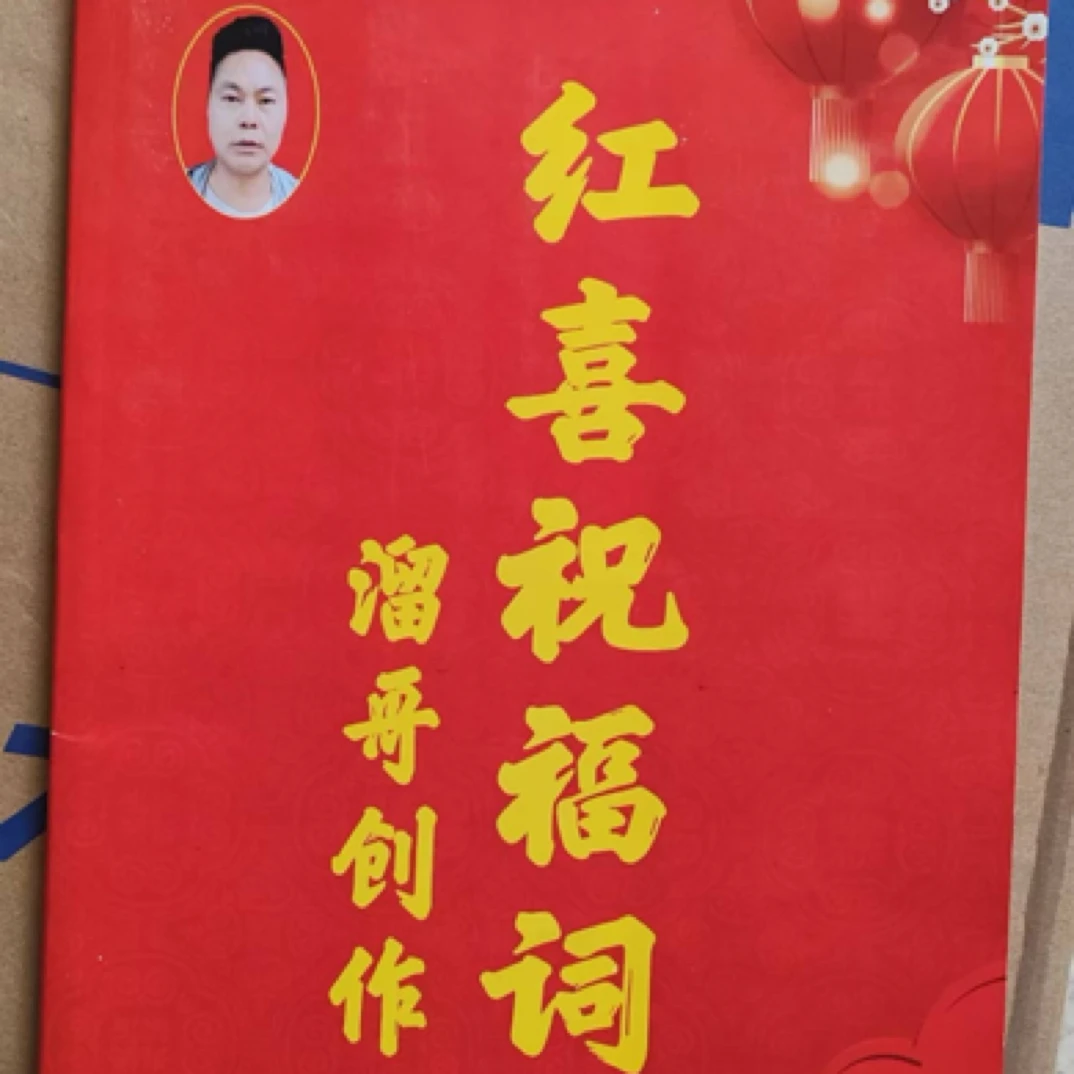 红喜祝福词
溜哥创作